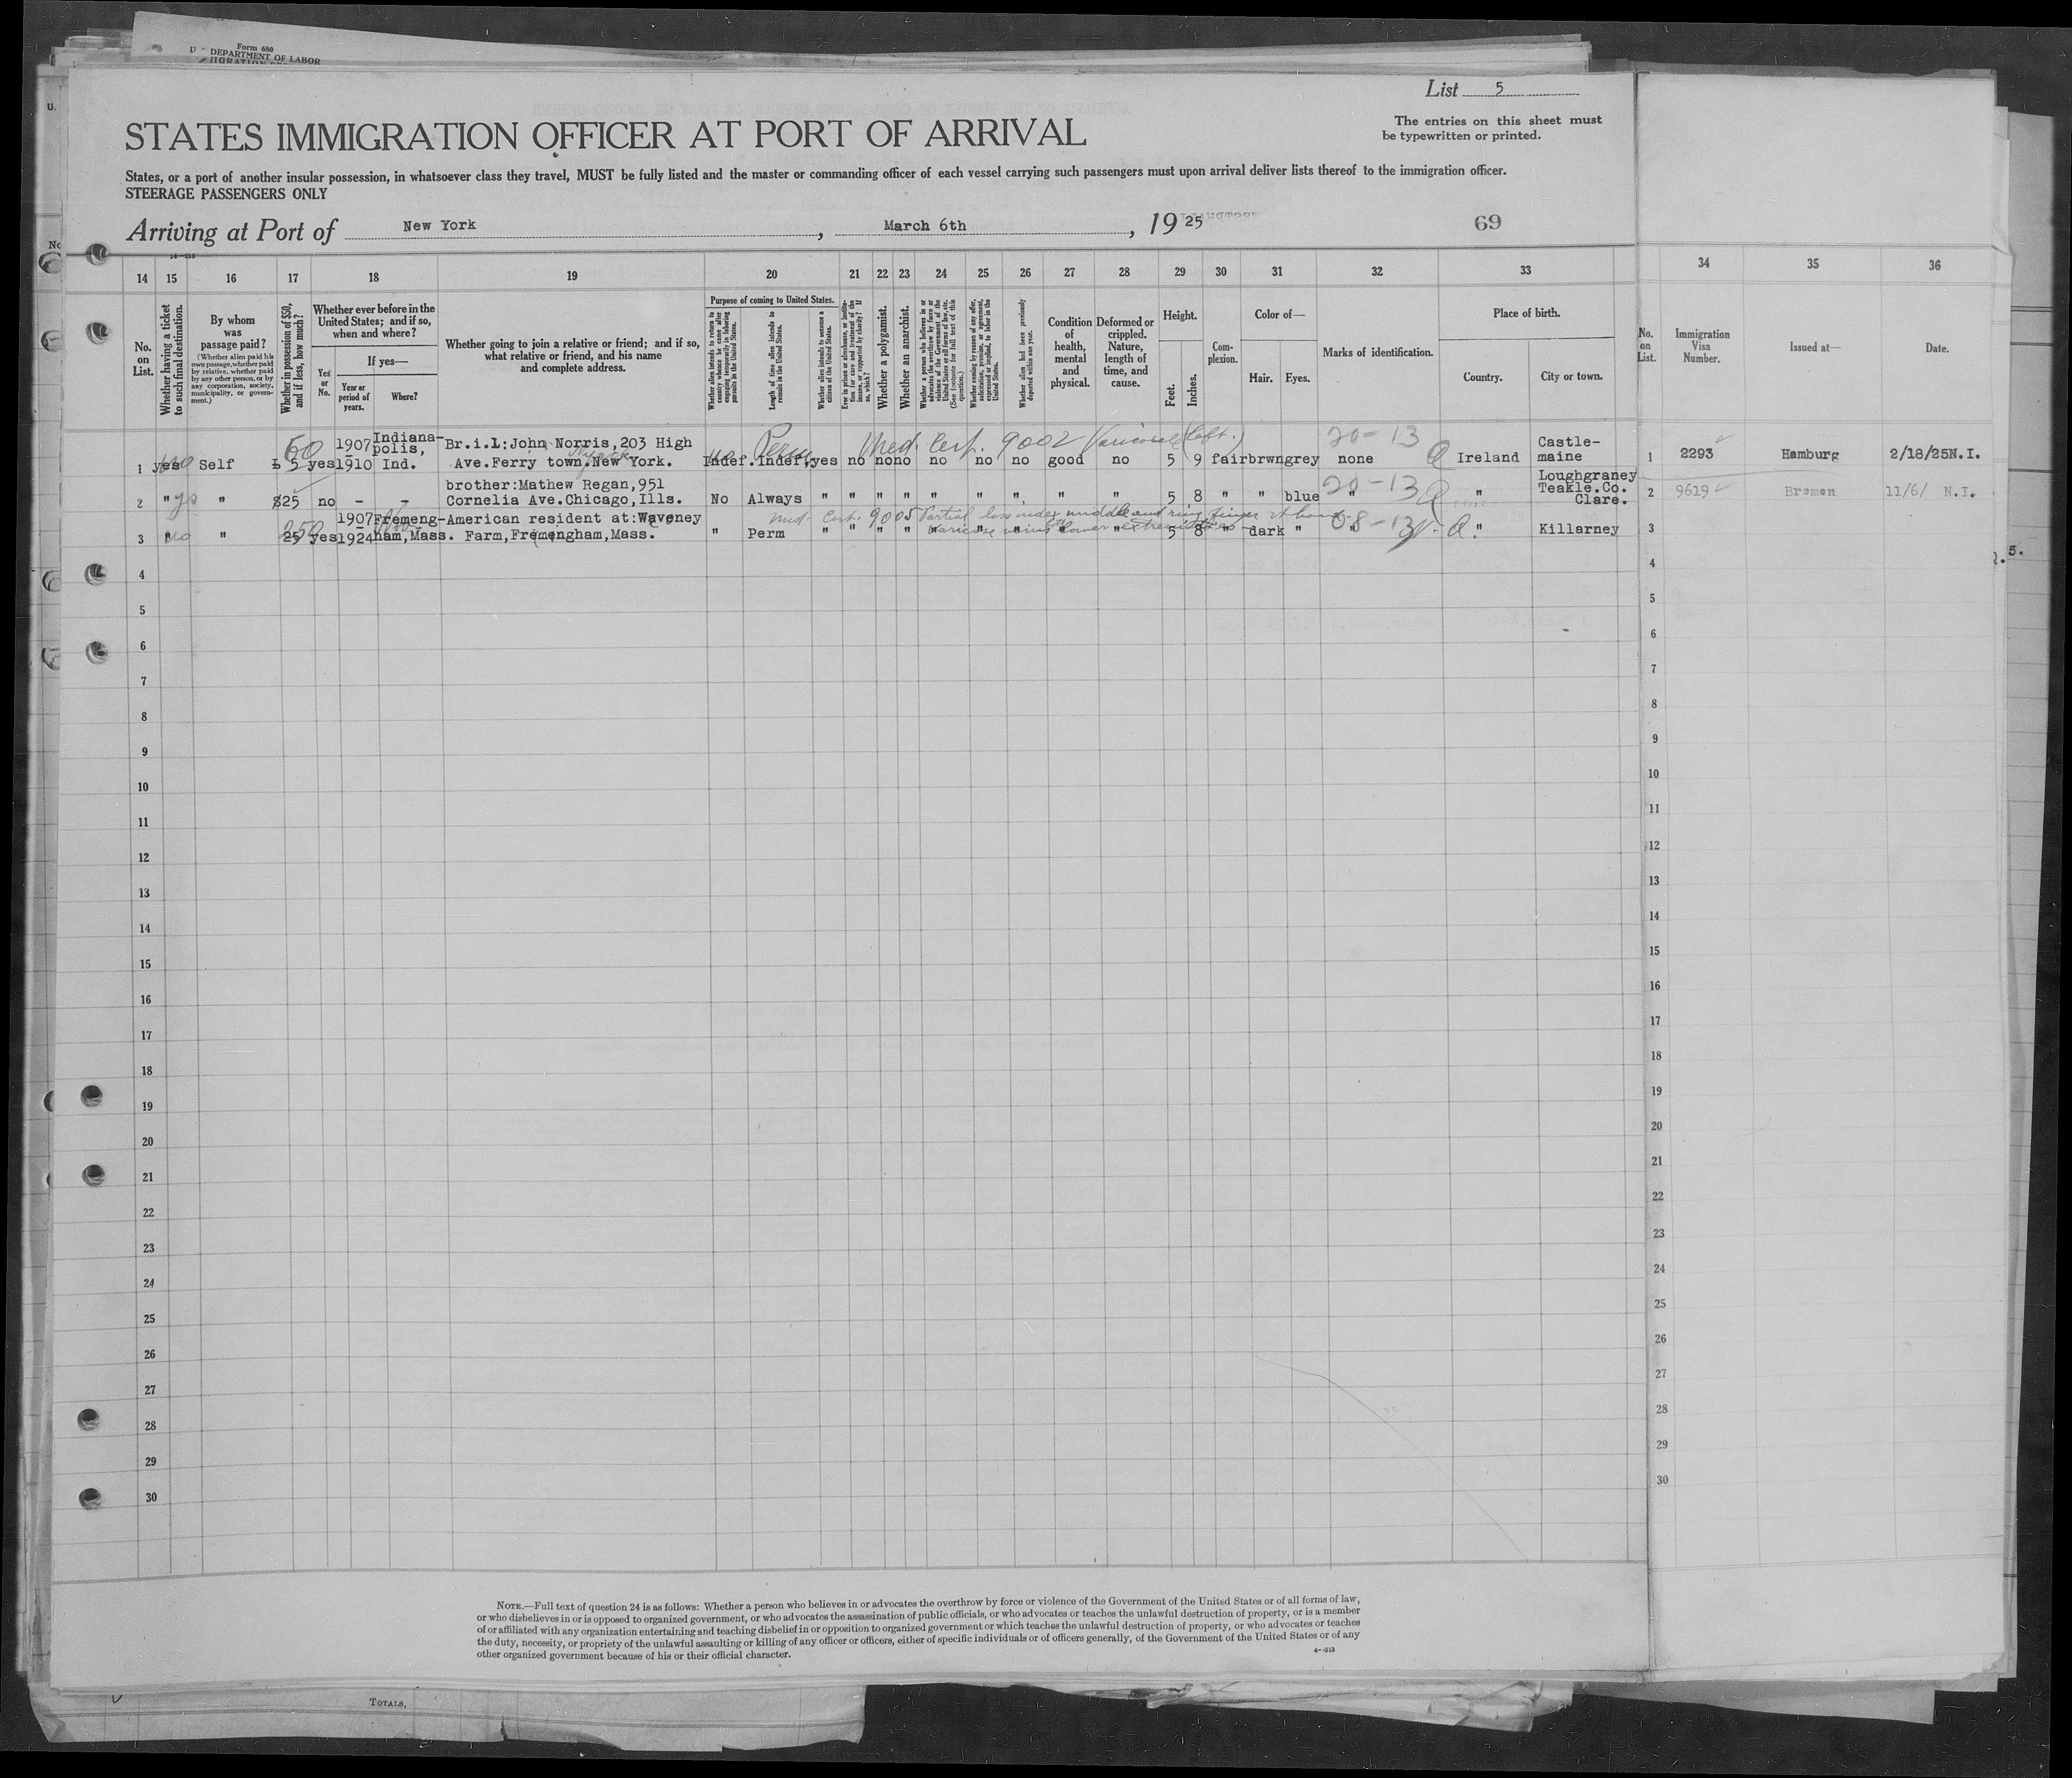 Form 680
DEPARTMENT OF LABOR
List 5
The entries on this sheet must
be typewritten or printed.
STATES IMMIGRATION OFFICER AT PORT OF ARRIVAL
States, or a port of another insular possession, in whatsoever class they travel, MUST be fully listed and the master or commanding officer of each vessel carrying such passengers must upon arrival deliver lists thereof to the immigration officer.
STEERAGE PASSENGERS ONLY
Arriving at Port of New York, March 6th, 1925 69
14 15 16 17 18 19 20 21 22 23 24 25 26 27 28 29 30 31 32 33 34 35 36
No. on List.
Whether having a ticket to such final destination.
By whom was passage paid?
(Whether alien paid his own passage, whether paid by relative, whether paid by any other person, or by any corporation, society, municipality, or government.)
Whether in possession of $50, and if less, how much?
Whether ever before in the United States; and if so, when and where?
Yes or No.
If yes—
Year or period of years.
Where?
Whether going to join a relative or friend; and if so, what relative or friend, and his name and complete address.
Purpose of coming to United States.
Whether alien intends to return to country whence he came after engaging temporarily in laboring pursuits in the United States.
Length of time alien intends to remain in the United States.
Whether alien intends to become a citizen of the United States.
Ever in prison or almshouse, or institution for care and treatment of the insane, or supported by charity? If so, which?
Whether a polygamist.
Whether an anarchist.
Whether a person who believes in or advocates the overthrow by force or violence of the Government of the United States or all forms of law, etc. (See footnote for full text of this question.)
Whether coming by reason of any offer, solicitation, promise, or agreement, expressed or implied, to labor in the United States.
Whether alien had been previously deported within one year.
Condition of health, mental and physical.
Deformed or crippled. Nature, length of time, and cause.
Height.
Feet. Inches.
Complexion.
Color of—
Hair. Eyes.
Marks of identification.
Place of birth.
Country. City or town.
No. on List.
Immigration Visa Number.
Issued at—
Date.
60 1907 Indiana- Br.i.l:John Norris,203 High Perm Med. Cert. 9002 Varicocele (left.) 20-13 Castle-
– polis,
1 yes no Self 5 yes 1910 Ind. Ave.Ferry town.New York. Indef.Indef,yes no no no no no no good no 5 9 fair brwn grey none Ireland maine 1 2293 Hamburg 2/18/25 N.I.
brother:Mathew Regan,951 20-13 Loughgraney
2 " yes " $25 no – – Cornelia Ave.Chicago,Ills. No Always " " " " " " " " " 5 8 " " blue " " Teakle.Co. 2 9619 Bremen 11/6/ N.I.
Clare.
250 1907 Fremeng-American resident at:Waveney Med. Cert. 9005 Partial loss index middle and ring finger rt hand 08-13
3 " no " 25 yes 1924 ham,Mass. Farm,Fremengham,Mass. " Perm " " " " " " " " " 5 8 " dark " " " Killarney 3
varicose veins lower extremities
4 4
5 5
6 6
7 7
8 8
9 9
10 10
11 11
12 12
13 13
14 14
15 15
16 16
17 17
18 18
19 19
20 20
21 21
22 22
23 23
24 24
25 25
26 26
27 27
28 28
29 29
30 30
NOTE.—Full text of question 24 is as follows: Whether a person who believes in or advocates the overthrow by force or violence of the Government of the United States or of all forms of law,
or who disbelieves in or is opposed to organized government, or who advocates the assassination of public officials, or who advocates or teaches the unlawful destruction of property, or is a member
of or affiliated with any organization entertaining and teaching disbelief in or opposition to organized government or which teaches the unlawful destruction of property, or who advocates or teaches
the duty, necessity, or propriety of the unlawful assaulting or killing of any officer or officers, either of specific individuals or of officers generally, of the Government of the United States or of any
other organized government because of his or their official character.
TOTALS,